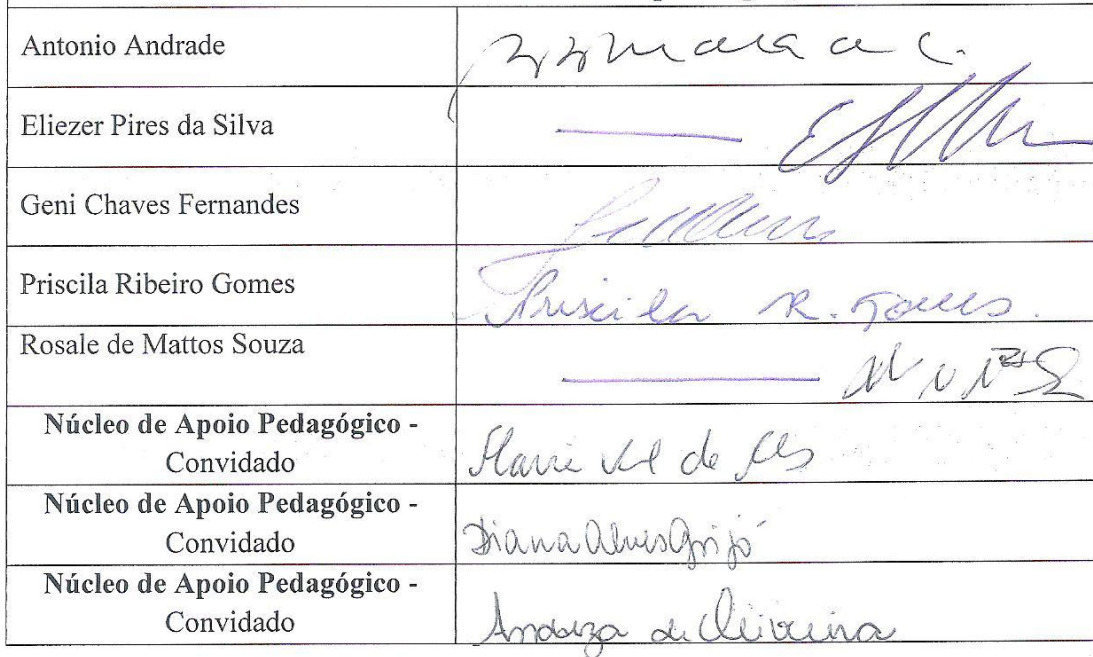 Antonio Andrade
Eliezer Pires da Silva
Geni Chaves Fernandes
Priscila Ribeiro Gomes
Priscila R. Gomes.
Rosale de Mattos Souza
Núcleo de Apoio Pedagógico -
Convidado
Núcleo de Apoio Pedagógico -
Convidado
Diana Alves Grijó
Núcleo de Apoio Pedagógico -
Convidado
Andreza de Oliveira